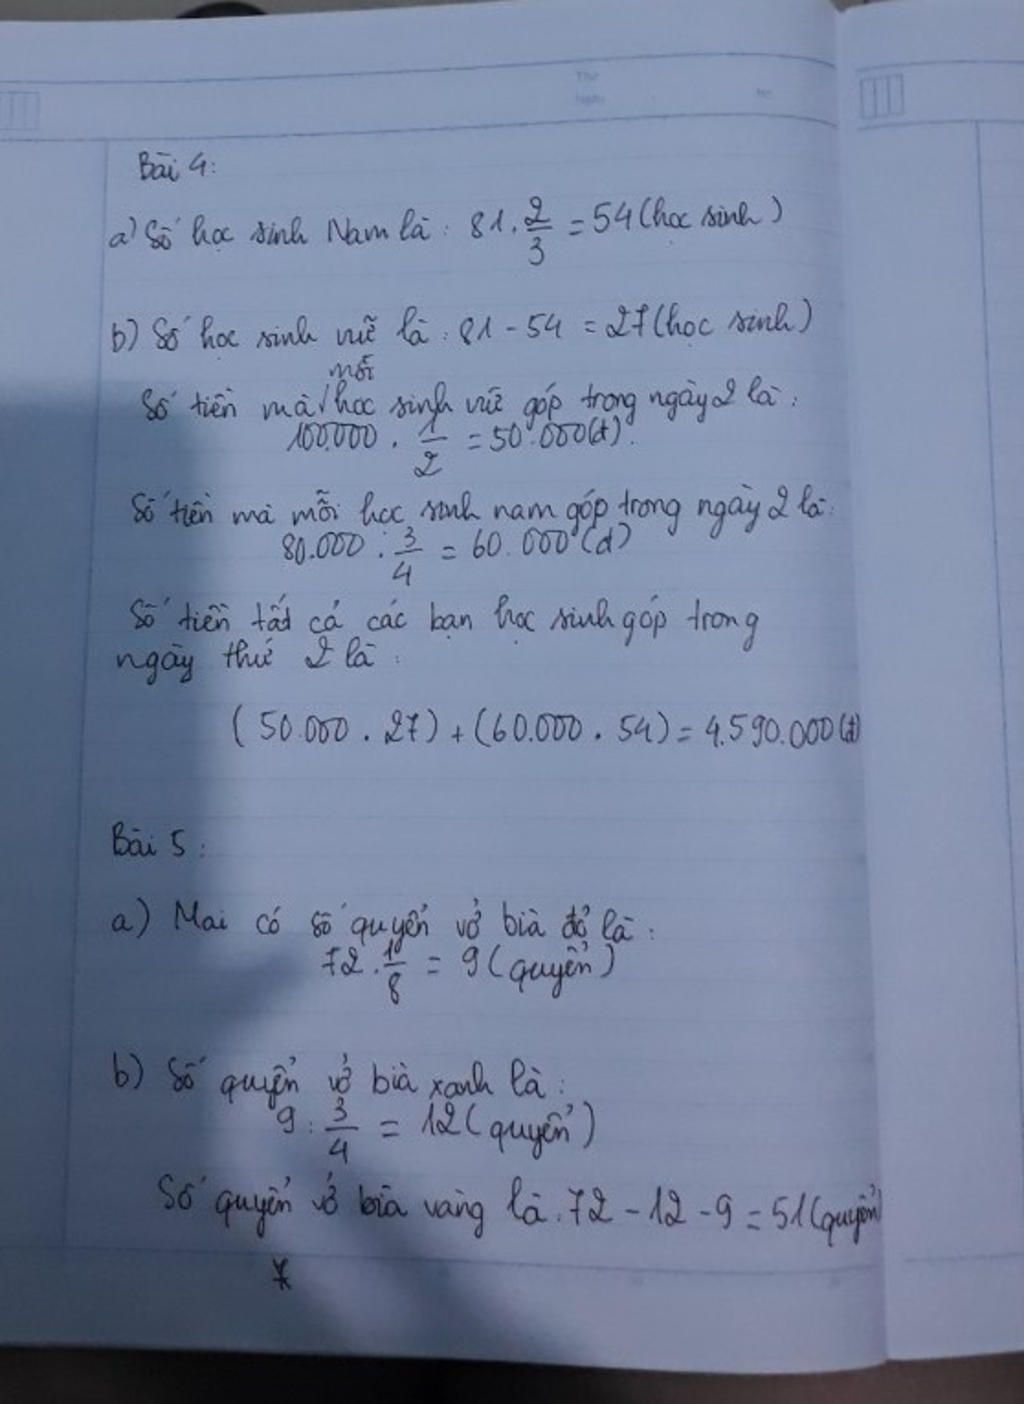 Thứ
Ngày
No
Bài 4:
a) Số học sinh Nam là: 81 . 2/3 = 54 (học sinh)
b) Số học sinh nữ là: 81 - 54 = 27 (học sinh)
mỗi
Số tiền mà √ học sinh nữ góp trong ngày 2 là:
100.000 . 1/2 = 50.000 (đ).
Số tiền mà mỗi học sinh nam góp trong ngày 2 là:
80.000 : 3/4 = 60.000 (đ)
Số tiền tất cả các bạn học sinh góp trong
ngày thứ 2 là:
(50.000 . 27) + (60.000 . 54) = 4.590.000 (đ)
Bài 5:
a) Mai có số quyển vở bià đỏ là:
72 . 1/8 = 9 (quyển)
b) Số quyển vở bià xanh là:
9 : 3/4 = 12 (quyển)
Số quyển vở bìa vàng là: 72 - 12 - 9 = 51 (quyển)